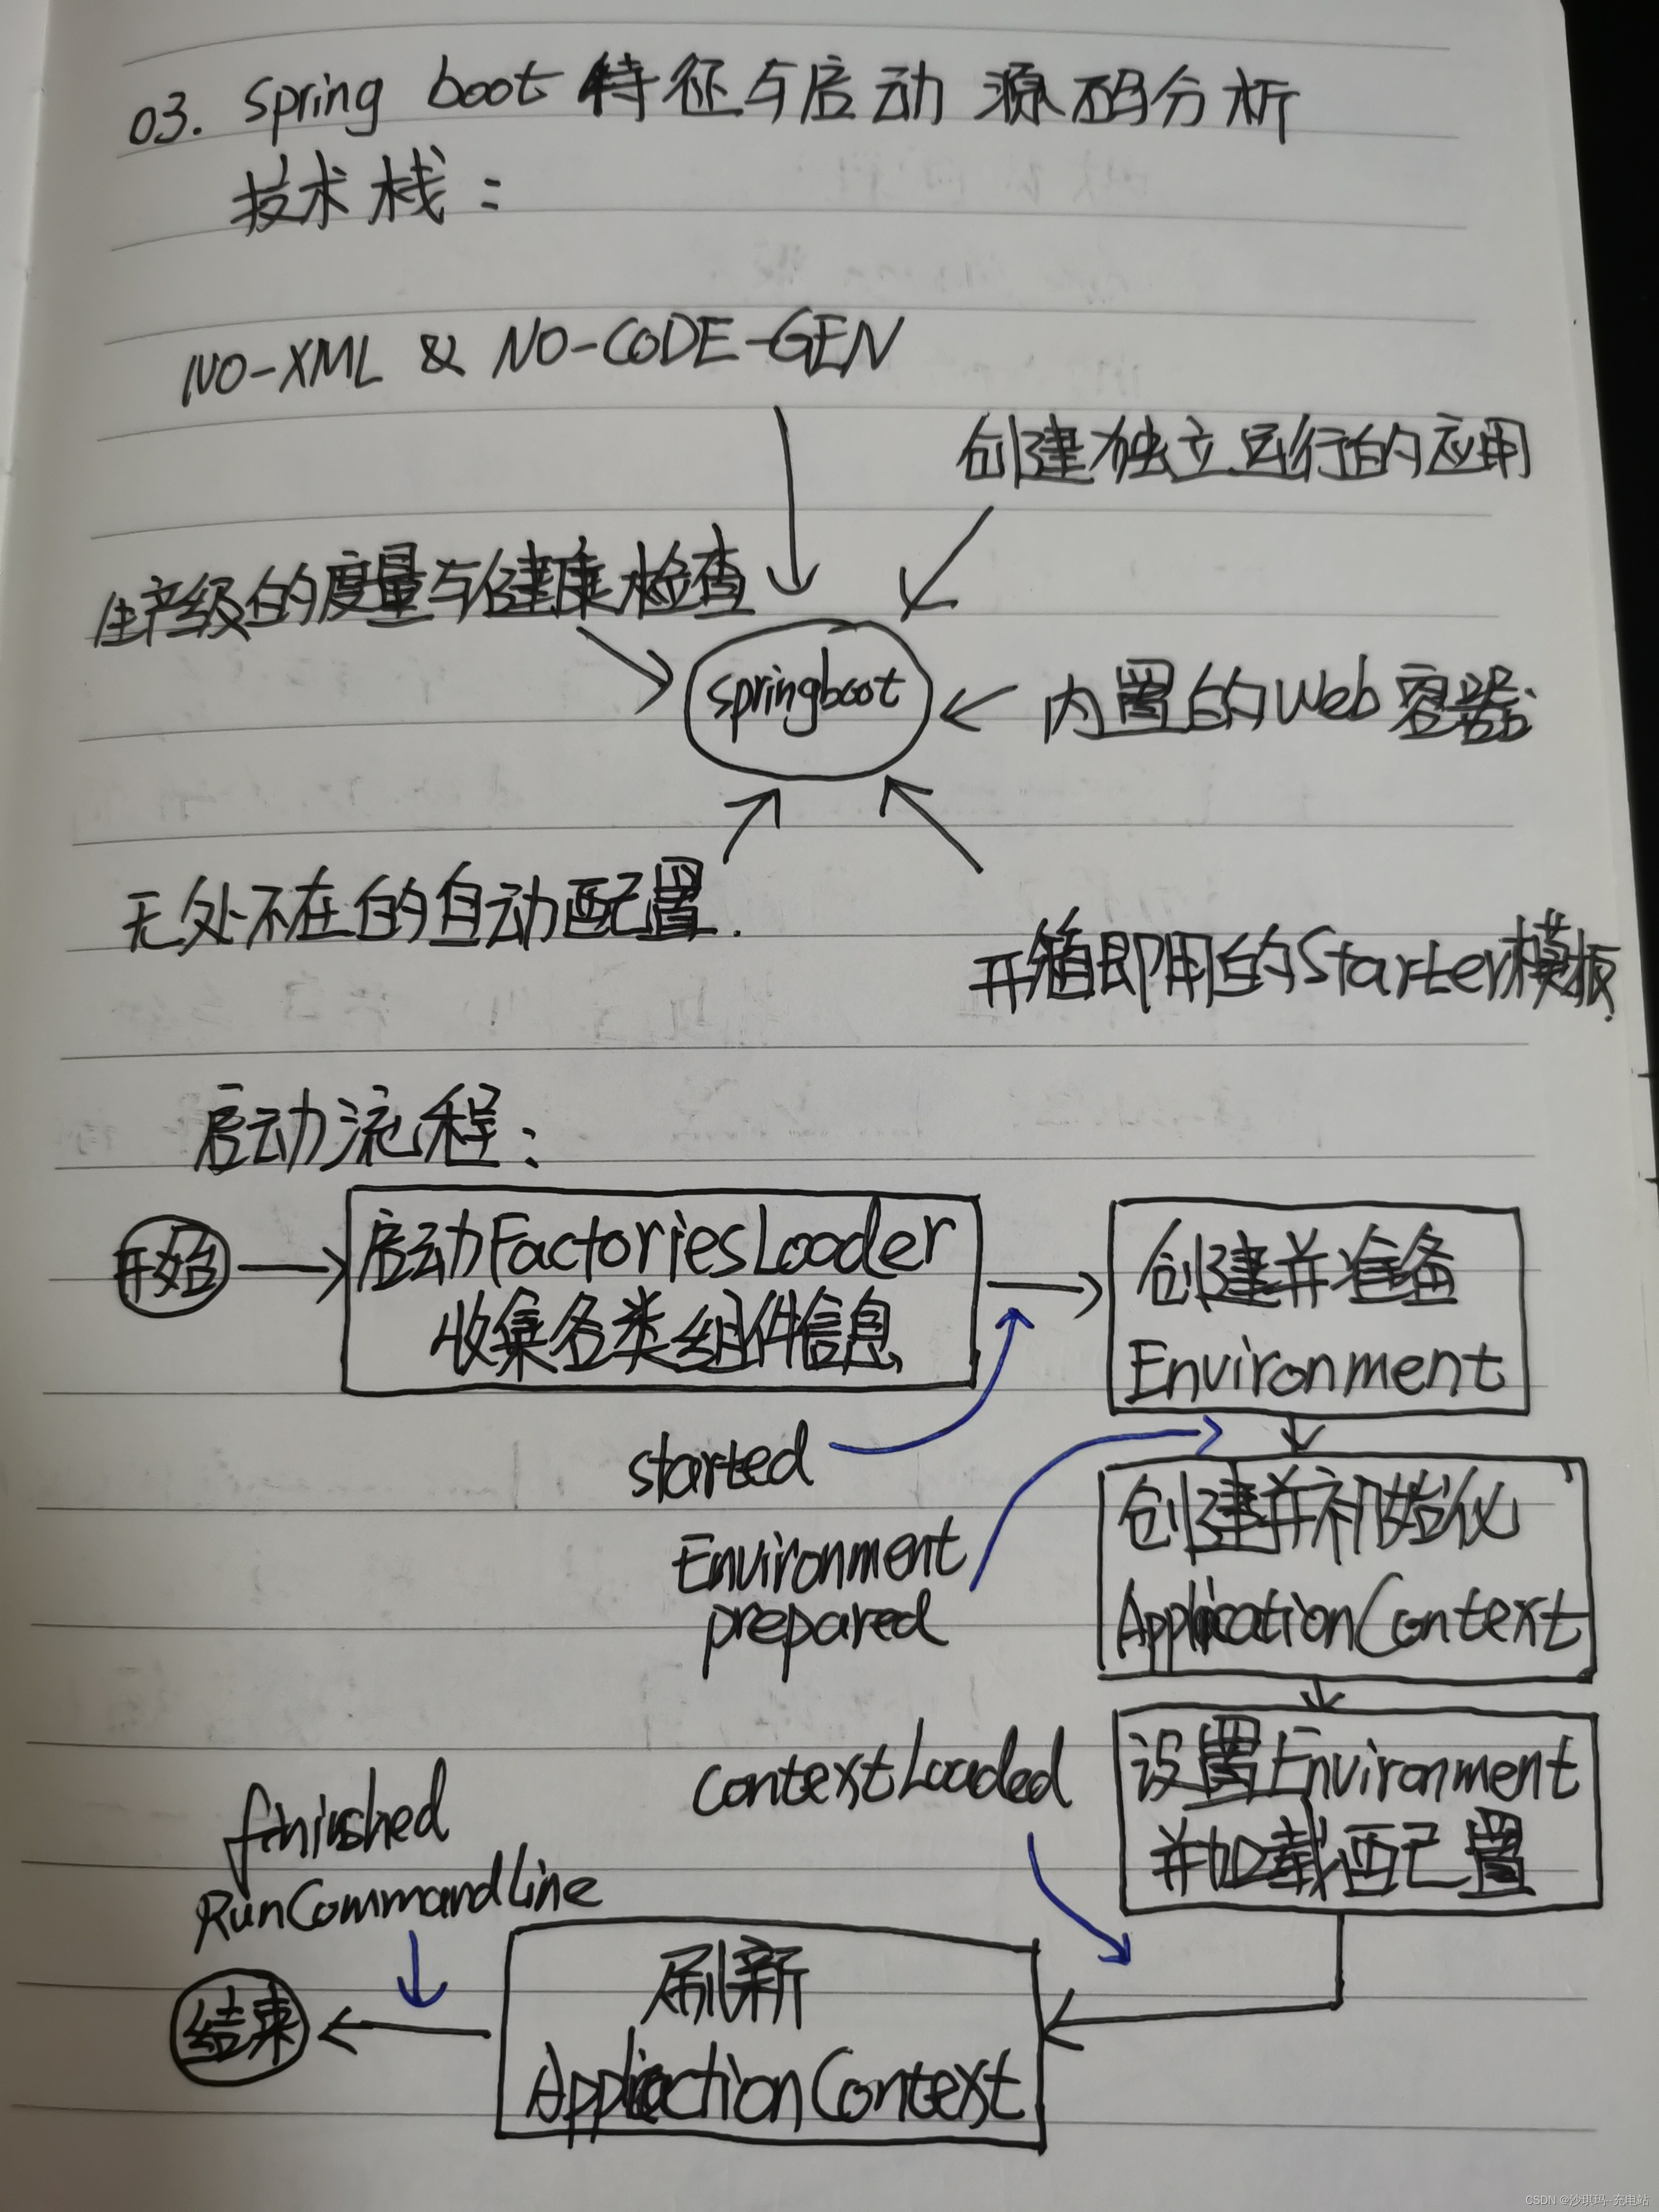 03. Spring boot 特征与启动 源码分析
技术栈:
NO-XML & NO-CODE-GEN
创建独立运行的应用
生产级的度量与健康检查
springboot
内置的Web容器
无处不在的自动配置.
开箱即用的Starter模板.
启动流程:
开始
启动FactoriesLoader
收集各类组件信息
创建并准备
Environment
started
Environment
prepared
创建并初始化
ApplicationContext
contextLoaded
设置Environment
并加载配置
finished
RunCommandLine
刷新
ApplicationContext
结束
CSDN @沙琪玛-充电站